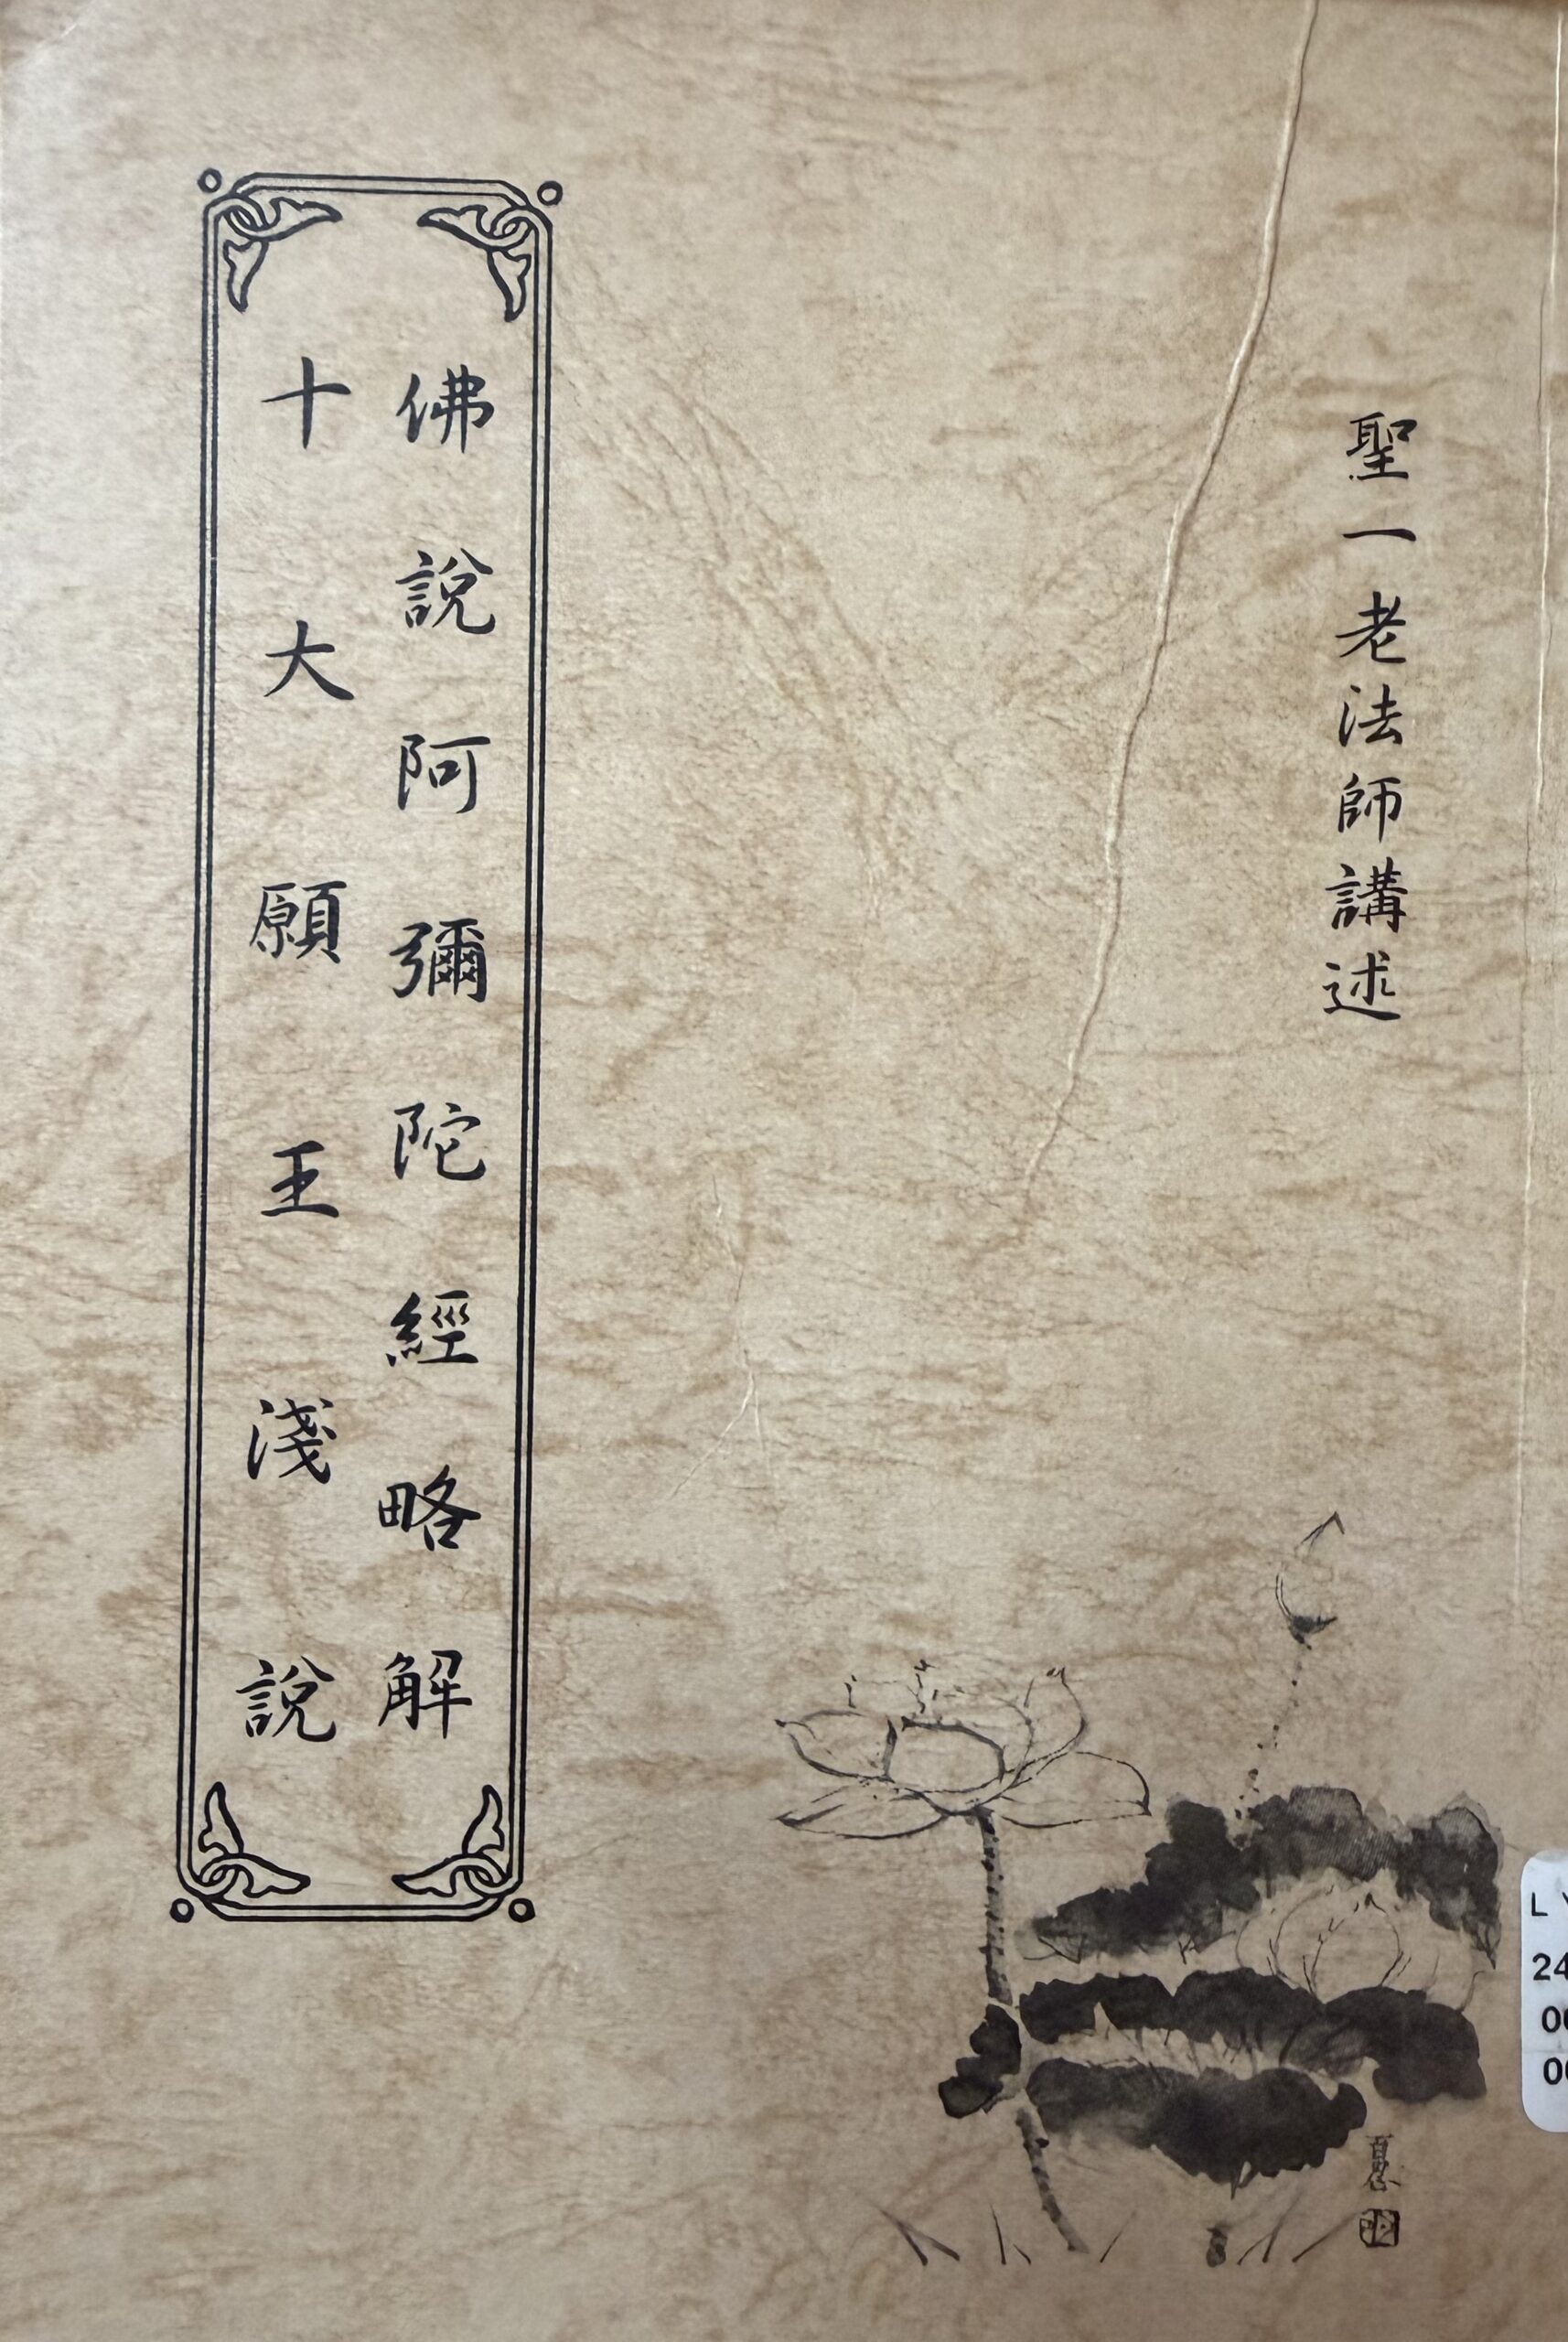 聖一老法師講述
佛說阿彌陀經略解
十大願王淺說
L
24
00
00